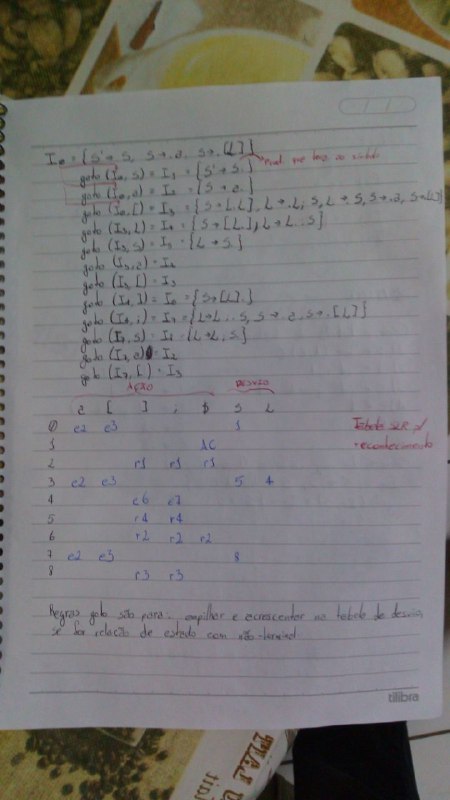 I0 = {S'→.S, S→.a, S→.[L]}
goto (I0, S) = I1 = {S'→S.}
goto (I0, a) = I2 = {S→a.}
goto (I0, [) = I3 = {S→[.L], L→.L;S, L→.S, S→.a, S→.[L]}
goto (I3, L) = I4 = {S→[L.], L→L.;S}
goto (I3, S) = I5 = {L→S.}
goto (I3, a) = I2
goto (I3, [) = I3
goto (I4, ]) = I6 = {S→[L].}
goto (I4, ;) = I7 = {L→L;.S, S→.a, S→.[L]}
goto (I7, S) = I8 = {L→L;S.}
goto (I7, a) = I2
goto (I7, [) = I3
AÇÃO DESVIO
a [ ] ; $ S L
0 e2 e3 1
1 AC
2 r1 r1 r1
3 e2 e3 5 4
4 e6 e7
5 r4 r4
6 r2 r2 r2
7 e2 e3 8
8 r3 r3
Tabela SLR p/
reconhecimento
Regras goto são para: empilhar e acrescentar na tabela de desvio,
se for relação de estado com não-terminal
tilibra